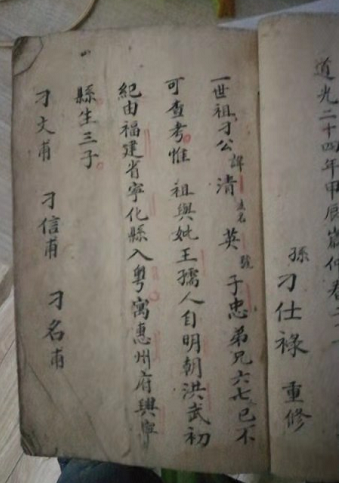 道光二十四年甲辰歲仲春
孫 刁仕祿 重修
一世祖刁公諱清 法名 英 號 子忠弟兄六七已不
可查考惟 祖與妣王孺人自明朝洪武初
紀由福建省寧化縣入粵寓惠州府興寧
縣生三子
刁文甫 刁信甫 刁名甫